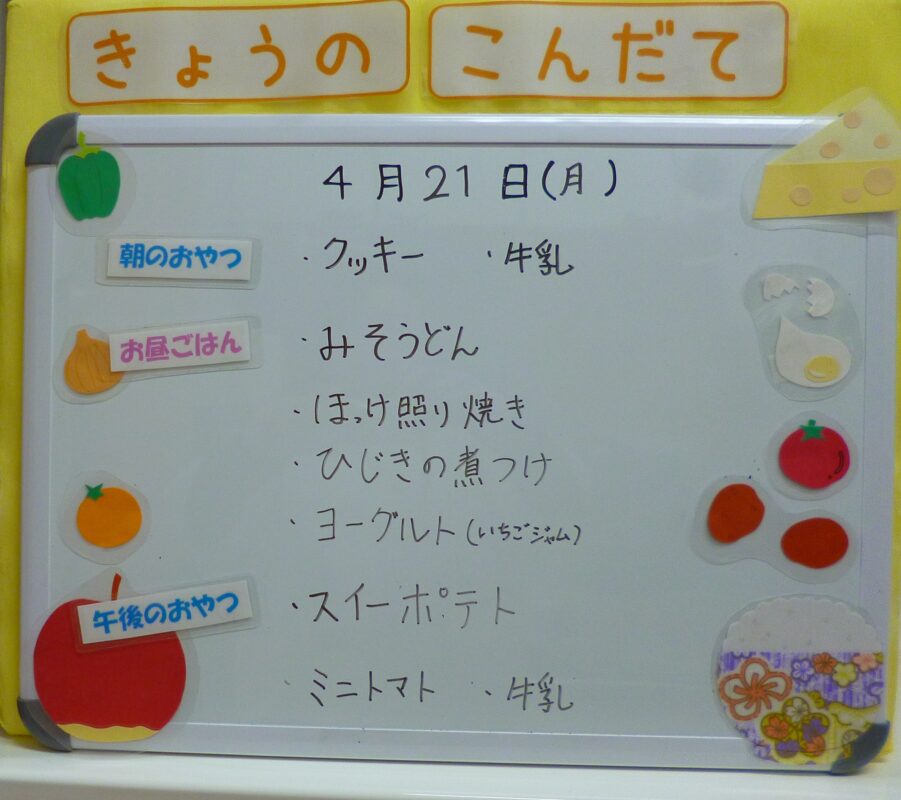 きょうの こんだて
4月21日(月)
朝のおやつ ・クッキー ・牛乳
お昼ごはん ・みそうどん
・ほっけ照り焼き
・ひじきの煮つけ
・ヨーグルト(いちごジャム)
午後のおやつ ・スイーポテト
・ミニトマト ・牛乳